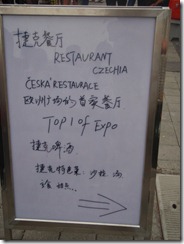 捷克餐厅
RESTAURANT
CZECHIA
ČESKÁ RESTAURACE
欧洲 的首家餐厅
TOP 1 of Expo
捷克啤酒
捷克特色菜、沙拉、汤